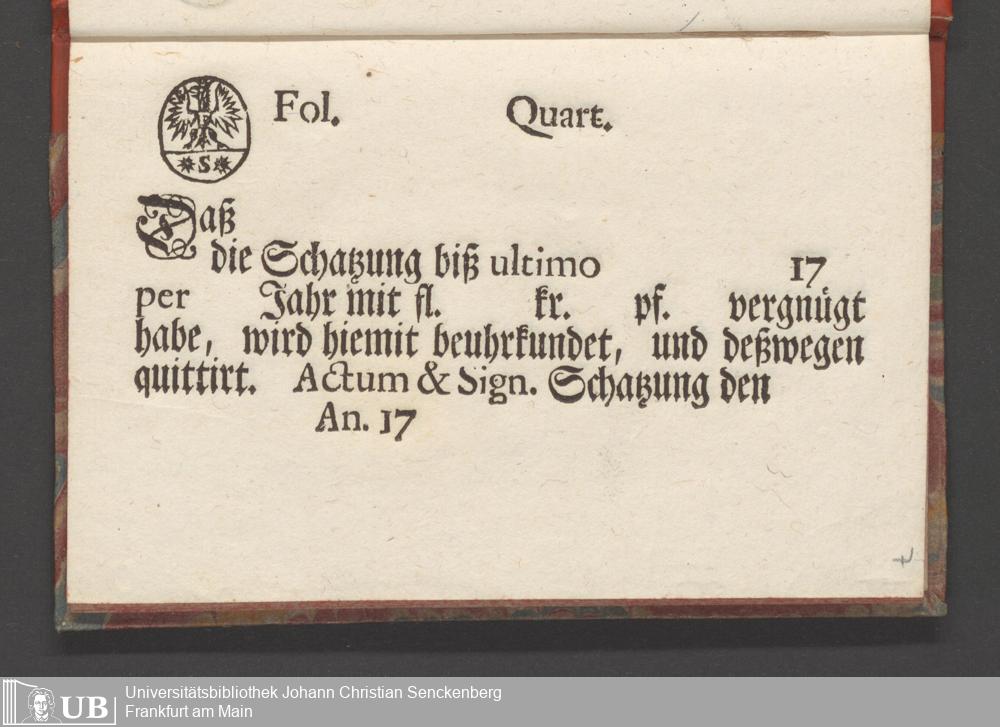 Fol. Quart.
*S*
Daß
die Schatzung biß ultimo 17
per Jahr mit fl. kr. pf. vergnügt
habe, wird hiemit beuhrkundet, und deßwegen
quittirt. Actum & Sign. Schatzung den
An. 17
UB Universitätsbibliothek Johann Christian Senckenberg
Frankfurt am Main